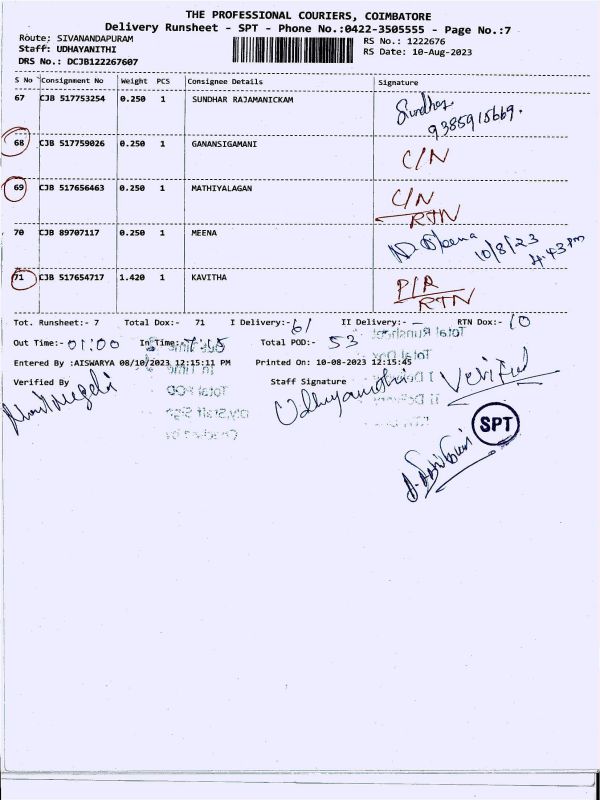 THE PROFESSIONAL COURIERS, COIMBATORE
Delivery Runsheet - SPT - Phone No.:0422-3505555 - Page No.:7
Route: SIVANANDAPURAM
RS No.: 1222676
Staff: UDHAYANITHI
RS Date: 10-Aug-2023
DRS No.: DCJB122267607
S No Consignment No Weight PCS Consignee Details Signature
67 CJB 517753254 0.250 1 SUNDHAR RAJAMANICKAM Sundhar
9385915669.
68 CJB 517759026 0.250 1 GANANSIGAMANI C/N
69 CJB 517656463 0.250 1 MATHIYALAGAN C/N
RTN
70 CJB 89707117 0.250 1 MEENA Meena 10/8/23
4.43 pm
71 CJB 517654717 1.420 1 KAVITHA P/R
RTN
Tot. Runsheet:- 7 Total Dox:- 71 I Delivery:- 61 II Delivery:- — RTN Dox:- 10
Out Time:- 01:00 In Time:- 7:15 Total POD:- 53
Entered By :AISWARYA 08/10/2023 12:15:11 PM Printed On: 10-08-2023 12:15:45
Verified By Staff Signature Udhyanithi Verified
SPT